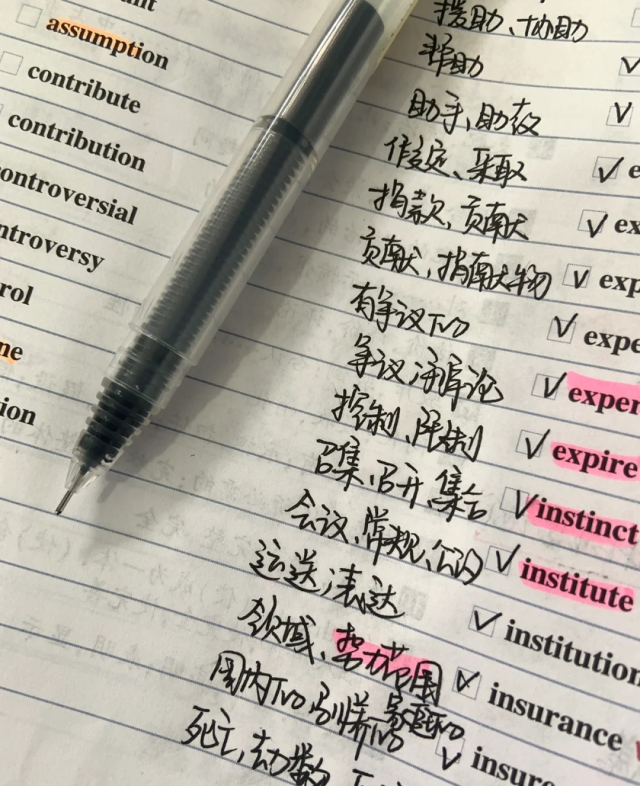 assumption
contribute
contribution
ontroversial
ntroversy
rol
ne
ion
援助、协助
帮助
助手、助教
假定、采取
捐款、贡献
贡献、捐献物
有争议
争议、争论
控制、限制
召集、召开、集合
会议、常规、公约
运送、表达
领域、势力范围
国内
死亡
e
ex
exp
expe
exper
expire
instinct
institute
institution
insurance
insure